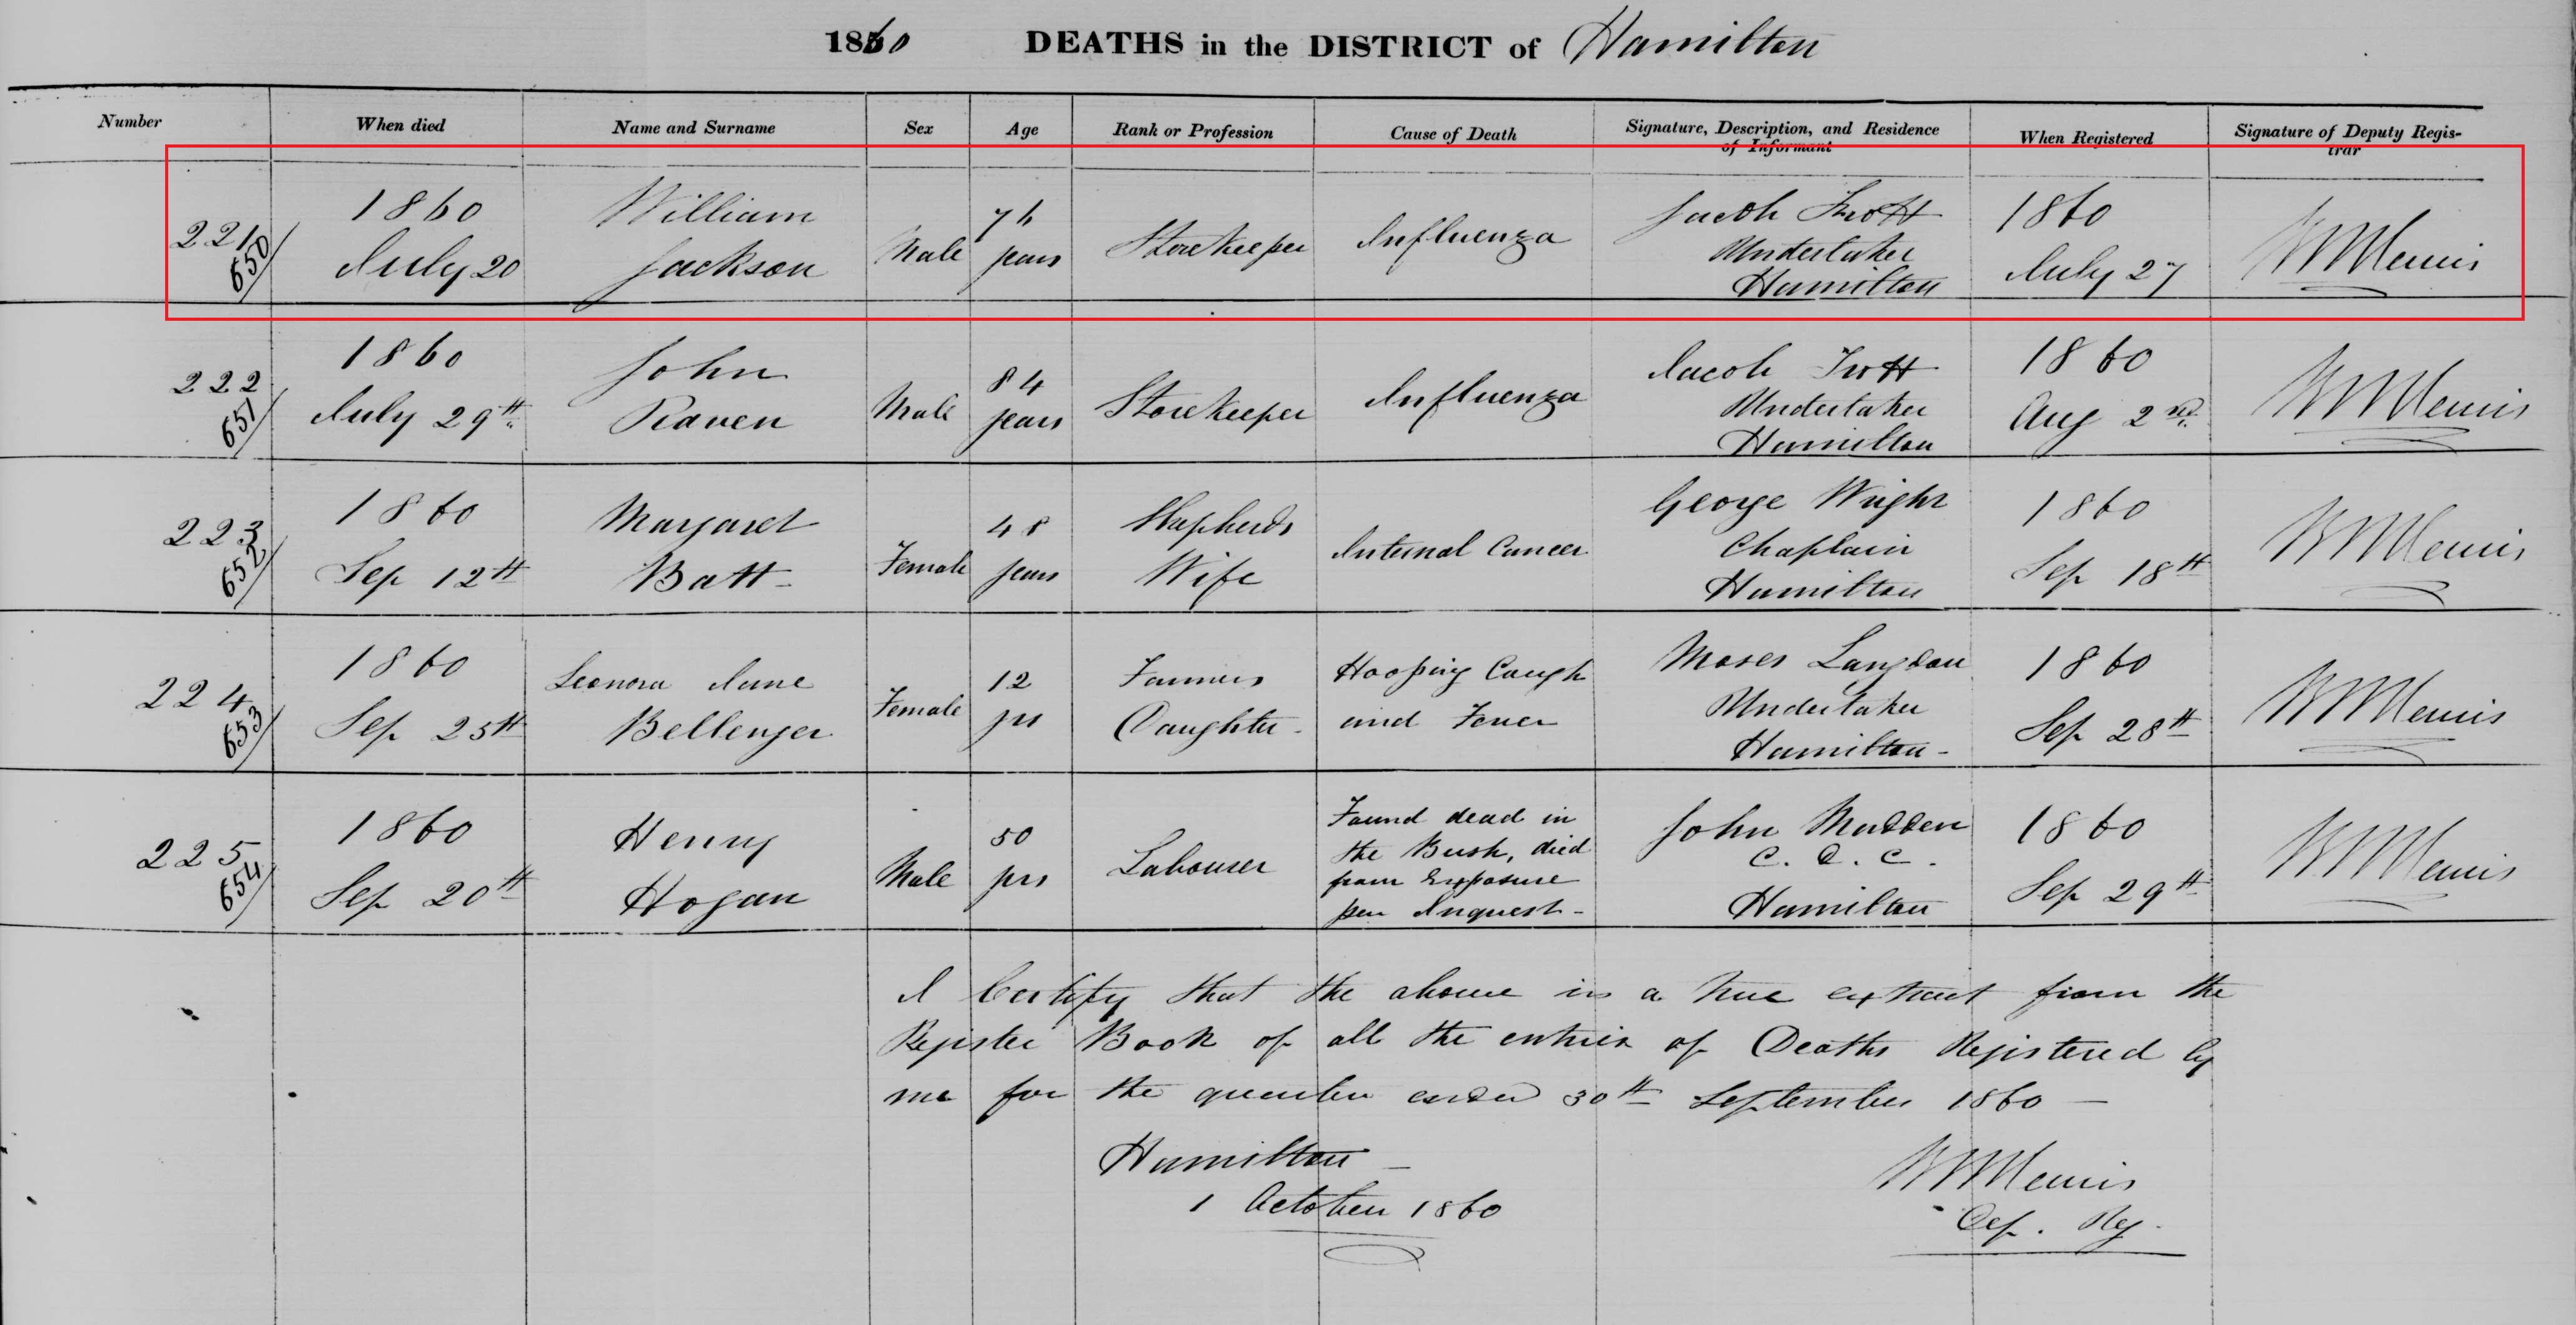 1860 DEATHS in the DISTRICT of Hamilton
Number When died Name and Surname Sex Age Rank or Profession Cause of Death Signature, Description, and Residence of Informant When Registered Signature of Deputy Registrar
221
650
1860
July 20
William
Jackson
Male
76
years
Storekeeper
Influenza
Jacob Trott
Undertaker
Hamilton
1860
July 27
222
651
1860
July 29th
John
Raven
Male
84
years
Storekeeper
Influenza
Jacob Trott
Undertaker
Hamilton
1860
Aug 2nd
223
652
1860
Sep 12th
Margaret
Batt
Female
48
years
Shepherds
Wife
Internal Cancer
George Wright
Chaplain
Hamilton
1860
Sep 18th
224
653
1860
Sep 25th
Leonora Jane
Bellenger
Female
12
yrs
Farmers
Daughter
Hooping Cough
and Fever
Moses Langdon
Undertaker
Hamilton
1860
Sep 28th
225
654
1860
Sep 20th
Henry
Hogan
Male
50
yrs
Labourer
Found dead in
the Bush, died
from Exposure
per Inquest
John Madden
C. D. C.
Hamilton
1860
Sep 29th
I Certify that the above is a true extract from the
Register Book of all the entries of Deaths Registered by
me for the quarter ended 30th September 1860
Hamilton
1 October 1860
Dep. Reg.